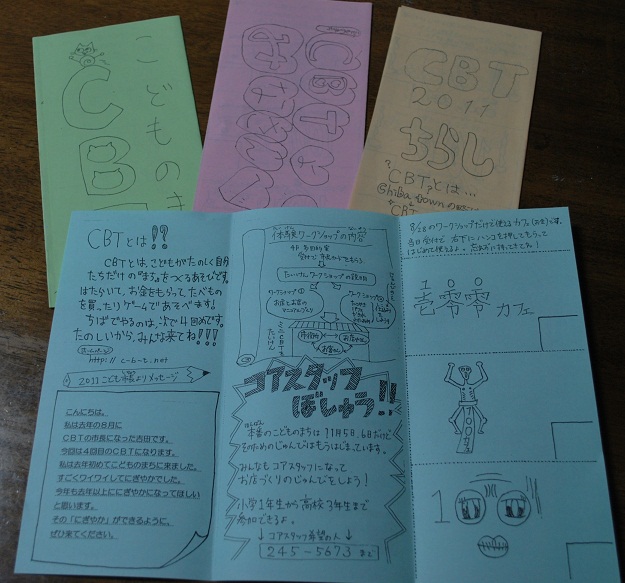 こどものま
CB
CBT
CBT
2011
ちらし
CBTとは…
Chiba Down
CBTとは!!
CBTとは、こどもがたのしく自分
たちだけの"まち"をつくるあそびです。
はたらいて、お金をもらって、たべもの
を買ったりゲームであそべます!
ちばでやるのは、次で4回めです。
たのしいから、みんな来てね!!!
http://c-b-t.net
2011こども市長よりメッセージ
こんにちは。
私は去年の8月に
CBTの市長になった吉田です。
今回は4回目のCBTになります。
私は去年初めてこどものまちに来ました。
すごくワイワイしてにぎやかでした。
今年も去年以上ににぎやかになってほしい
と思います。
その「にぎやか」ができるように、
ぜひ来てください。
体験ワークショップの内容
たいけんワークショップの説明
ワークショップ①
ワークショップ②
コアスタッフ
ぼしゅう!!
本番のこどものまちは11月5日、6日だけど
そのためのじゅんびはもうはじまっています。
みんなもコアスタッフになって
お店づくりのじゅんびをしよう!
小学1年生から高校3年生まで
参加できるよ。
↓コアスタッフ希望の人↓
245-5673まで
8/28のワークショップだけで使えるカフェ(お金)です。
当日受付で、右下にハンコを押してもらって
はじめて使えるよ。忘れずに持ってきてね!
100
壱零零カフェ
100カフェ
1